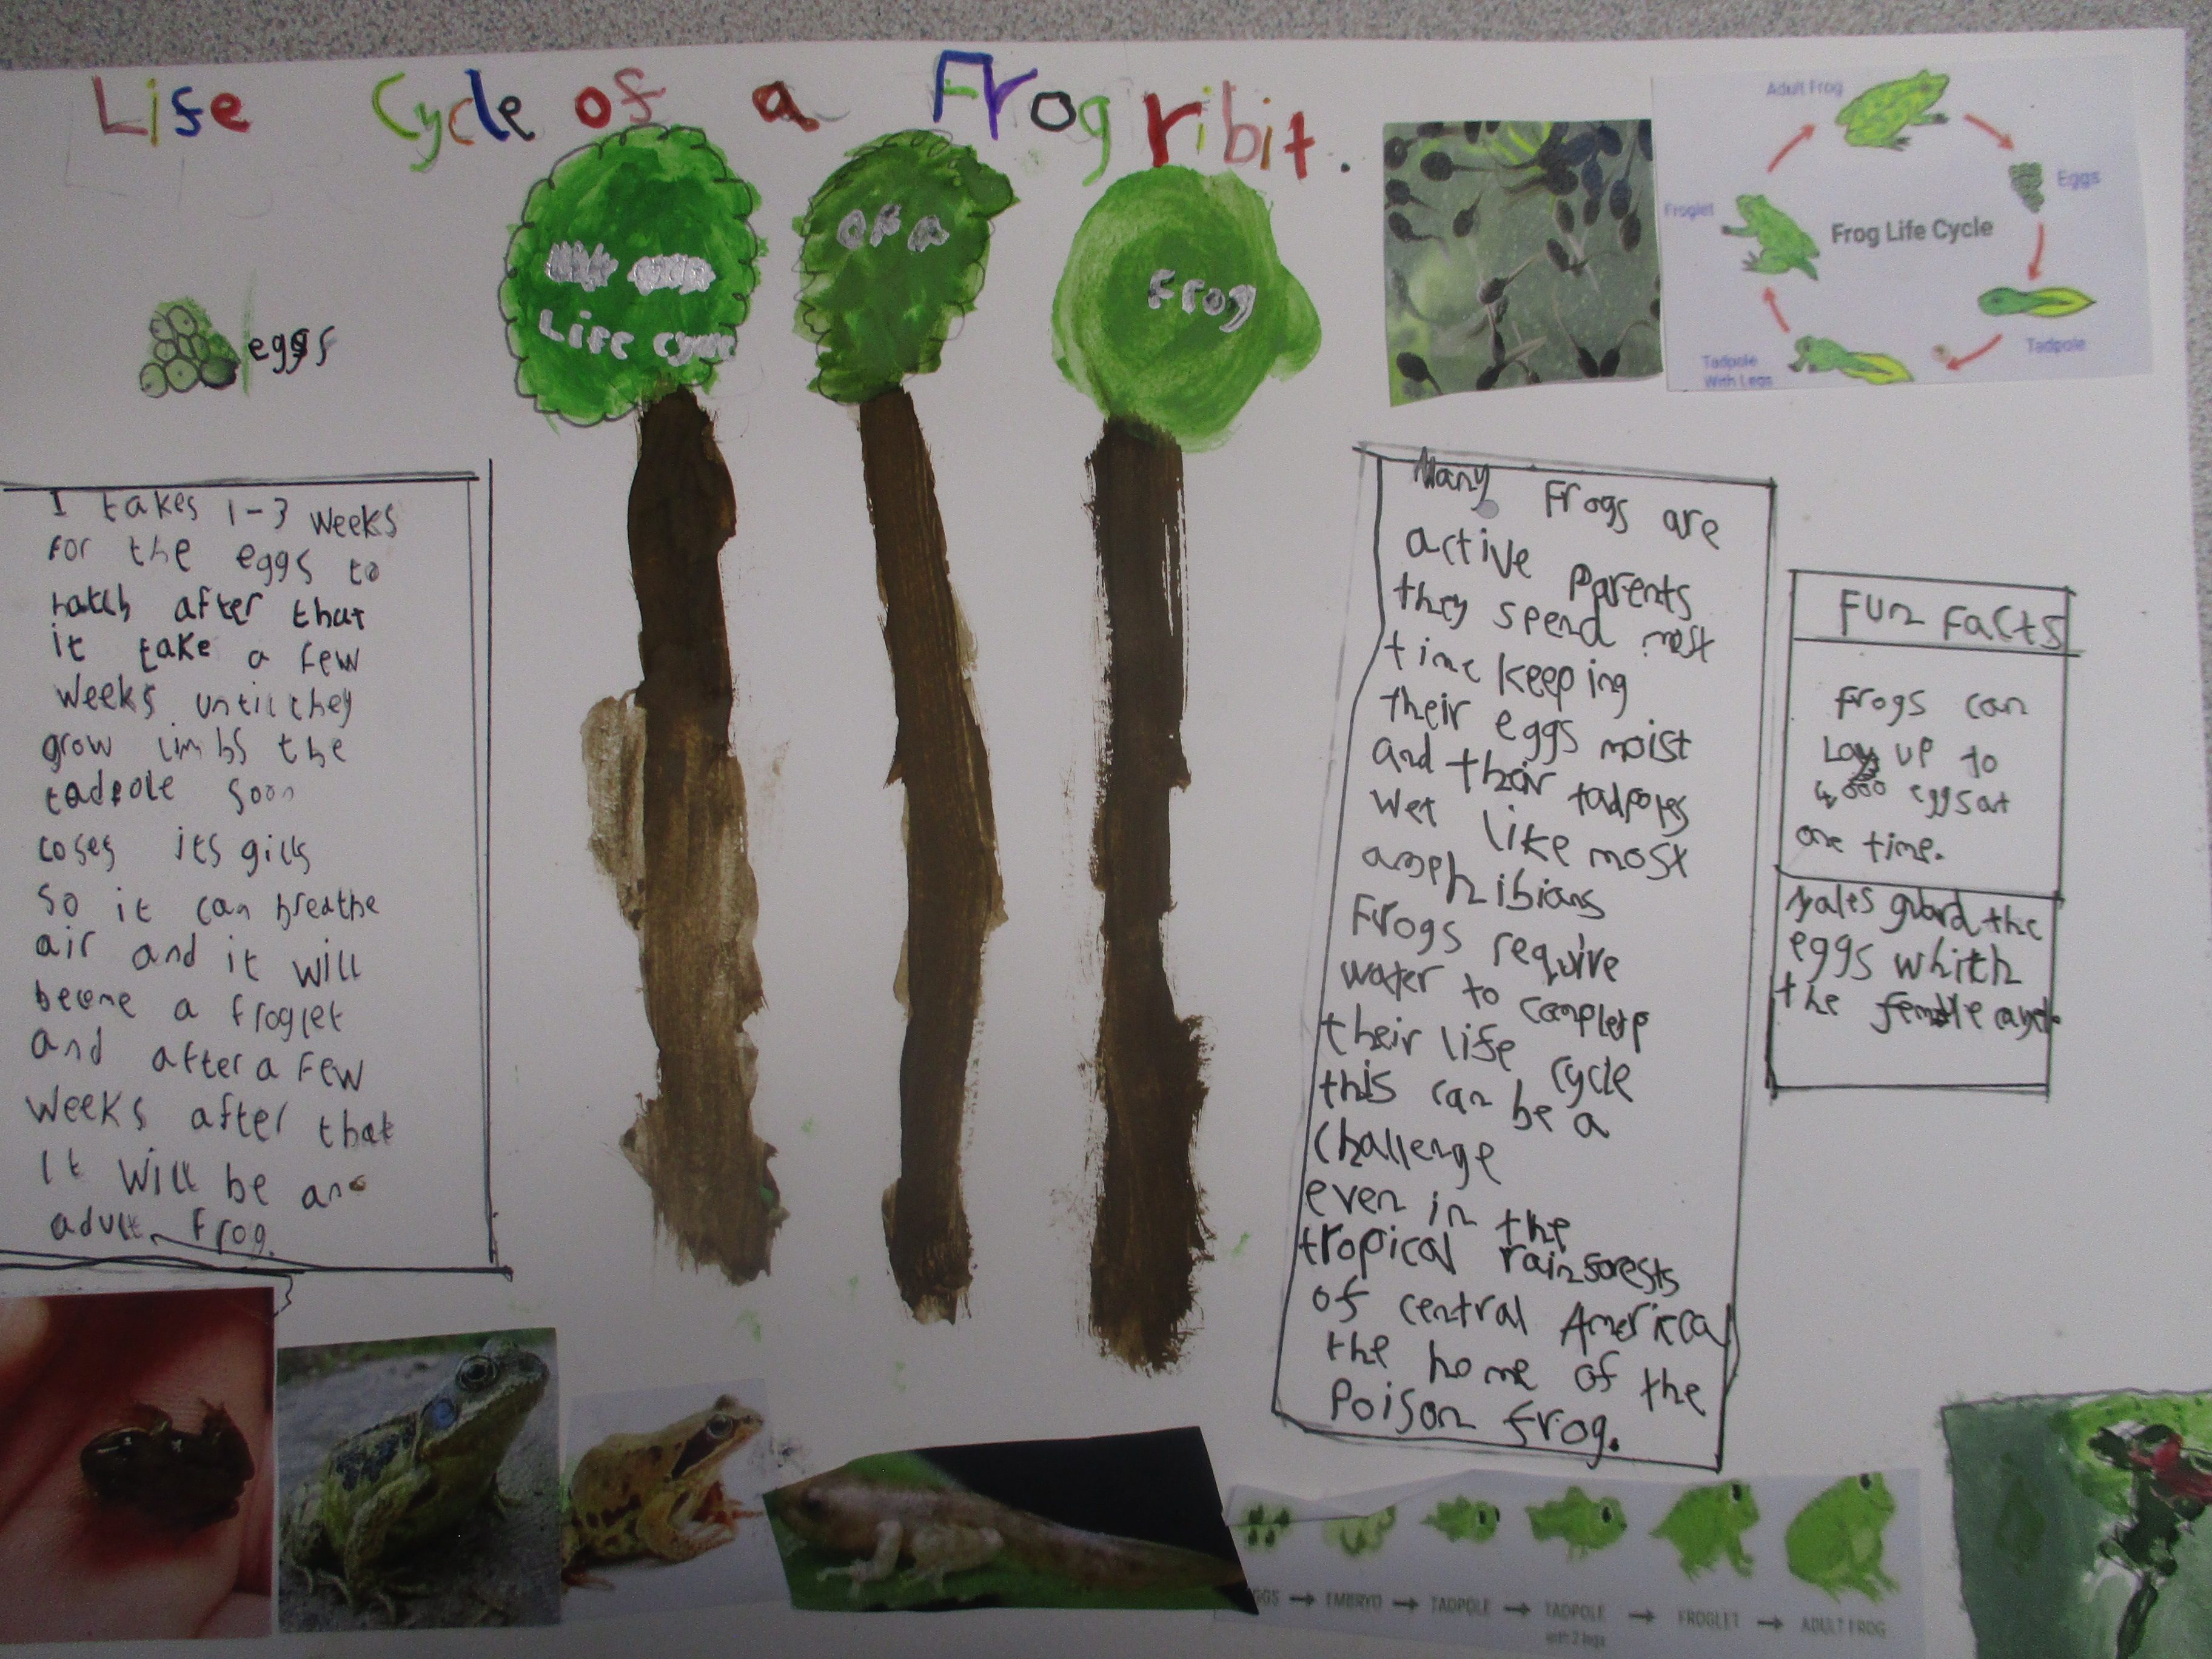 Life Cycle of a Frog ribit.
Life Cycle
OF A
Frog
eggs
I takes 1-3 weeks
for the eggs to
hatch after that
it take a few
weeks until they
grow limbs the
tadpole soon
loses its gills
so it can breathe
air and it will
become a froglet
and after a few
weeks after that
It will be an
adult frog.
Adult Frog
Eggs
Froglet
Frog Life Cycle
Tadpole
Tadpole
With Legs
Many Frogs are
active parents
they spend most
time keeping
their eggs moist
and their tadpoles
wet like most
amphibians
Frogs require
water to complete
their life cycle
this can be a
challenge
even in the
tropical rainforests
of central America
the home of the
Poison frog.
Fun Facts
Frogs can
Lay up to
4,000 eggs at
one time.
Males guard the
eggs whith
the female
EGGS → EMBRYO → TADPOLE → TADPOLE → FROGLET → ADULT FROG
with 2 legs